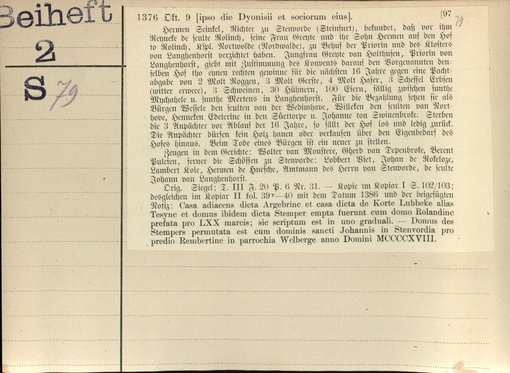 Beiheft
2
S 79
1376 Okt. 9 [ipso die Dyonisii et sociorum eius]. [97
79
Hermen Seinkel, Richter zu Stenvorde (Steinfurt), bekundet, daß vor ihm
Reyneke de sculte Rolinch, seine Frau Greyte und ihr Sohn Hermen auf den Hof
to Rolinch, Kspl. Nortwolde (Nordwalde), zu Behuf der Priorin und des Klosters
von Langhenhorst verzichtet haben. Jungfrau Greyte van Holthusen, Priorin van
Langhenhorst, giebt mit Zustimmung des Konvents darauf den Vorgenannten den-
selben Hof tho ennen rechten gewinne für die nächsten 16 Jahre gegen eine Pacht-
abgabe von 2 Molt Roggen, 3 Molt Gerste, 4 Molt Hafer, 3 Scheffel Erbsen
(witter erwete), 3 Schweinen, 30 Hühnern, 100 Eiern, fällig zwischen sunthe
Mychahele u. sunthe Mertens in Langhenhorst. Für die Bezahlung setzen sie als
Bürgen Wessele den sculten van der Wedinhove, Willeken den sculten van Nort-
hove, Henneken Edelerinc in den Süettorpe u. Johanne ton Swinenbroke. Sterben
die 3 Anpächter vor Ablauf der 16 Jahre, so fällt der Hof los und ledig zurück.
Die Anpächter dürfen kein Holz hauen oder verkaufen über den Eigenbedarf des
Hofes hinaus. Beim Tode eines Bürgen ist ein neuer zu stellen.
Zeugen in dem Gerichte: Wolter van Monstere, Gherd van Depenbroke, Berent
Puleien, ferner die Schöffen zu Stenworde: Lobbert Viet, Johan de Rokeloze,
Lambert Kole, Hermen de Huesche, Amtmann des Herrn van Stenworde, de scule
Johann van Langhenhorst.
Orig. Siegel; T. III F. 20 P. 6 Nr. 31. — Kopie im Kopiar I S. 102/103;
desgleichen im Kopiar II fol. 39v—40 mit dem Datum 1386 und der beigefügten
Notiz: Casa adiacens dicta Argebrine et casa dicta de Korte Lubbeke alias
Tesyne et domus ibidem dicta Stemper empta fuerunt cum domo Rolandinc
prefata pro LXX marcis; sic scriptum est in uno graduali. — Domus des
Stempers permutata est cum dominis sancti Johannis in Stenvordia pro
predio Rembertinc in parrochia Welberge anno Domini MCCCCXVIII.